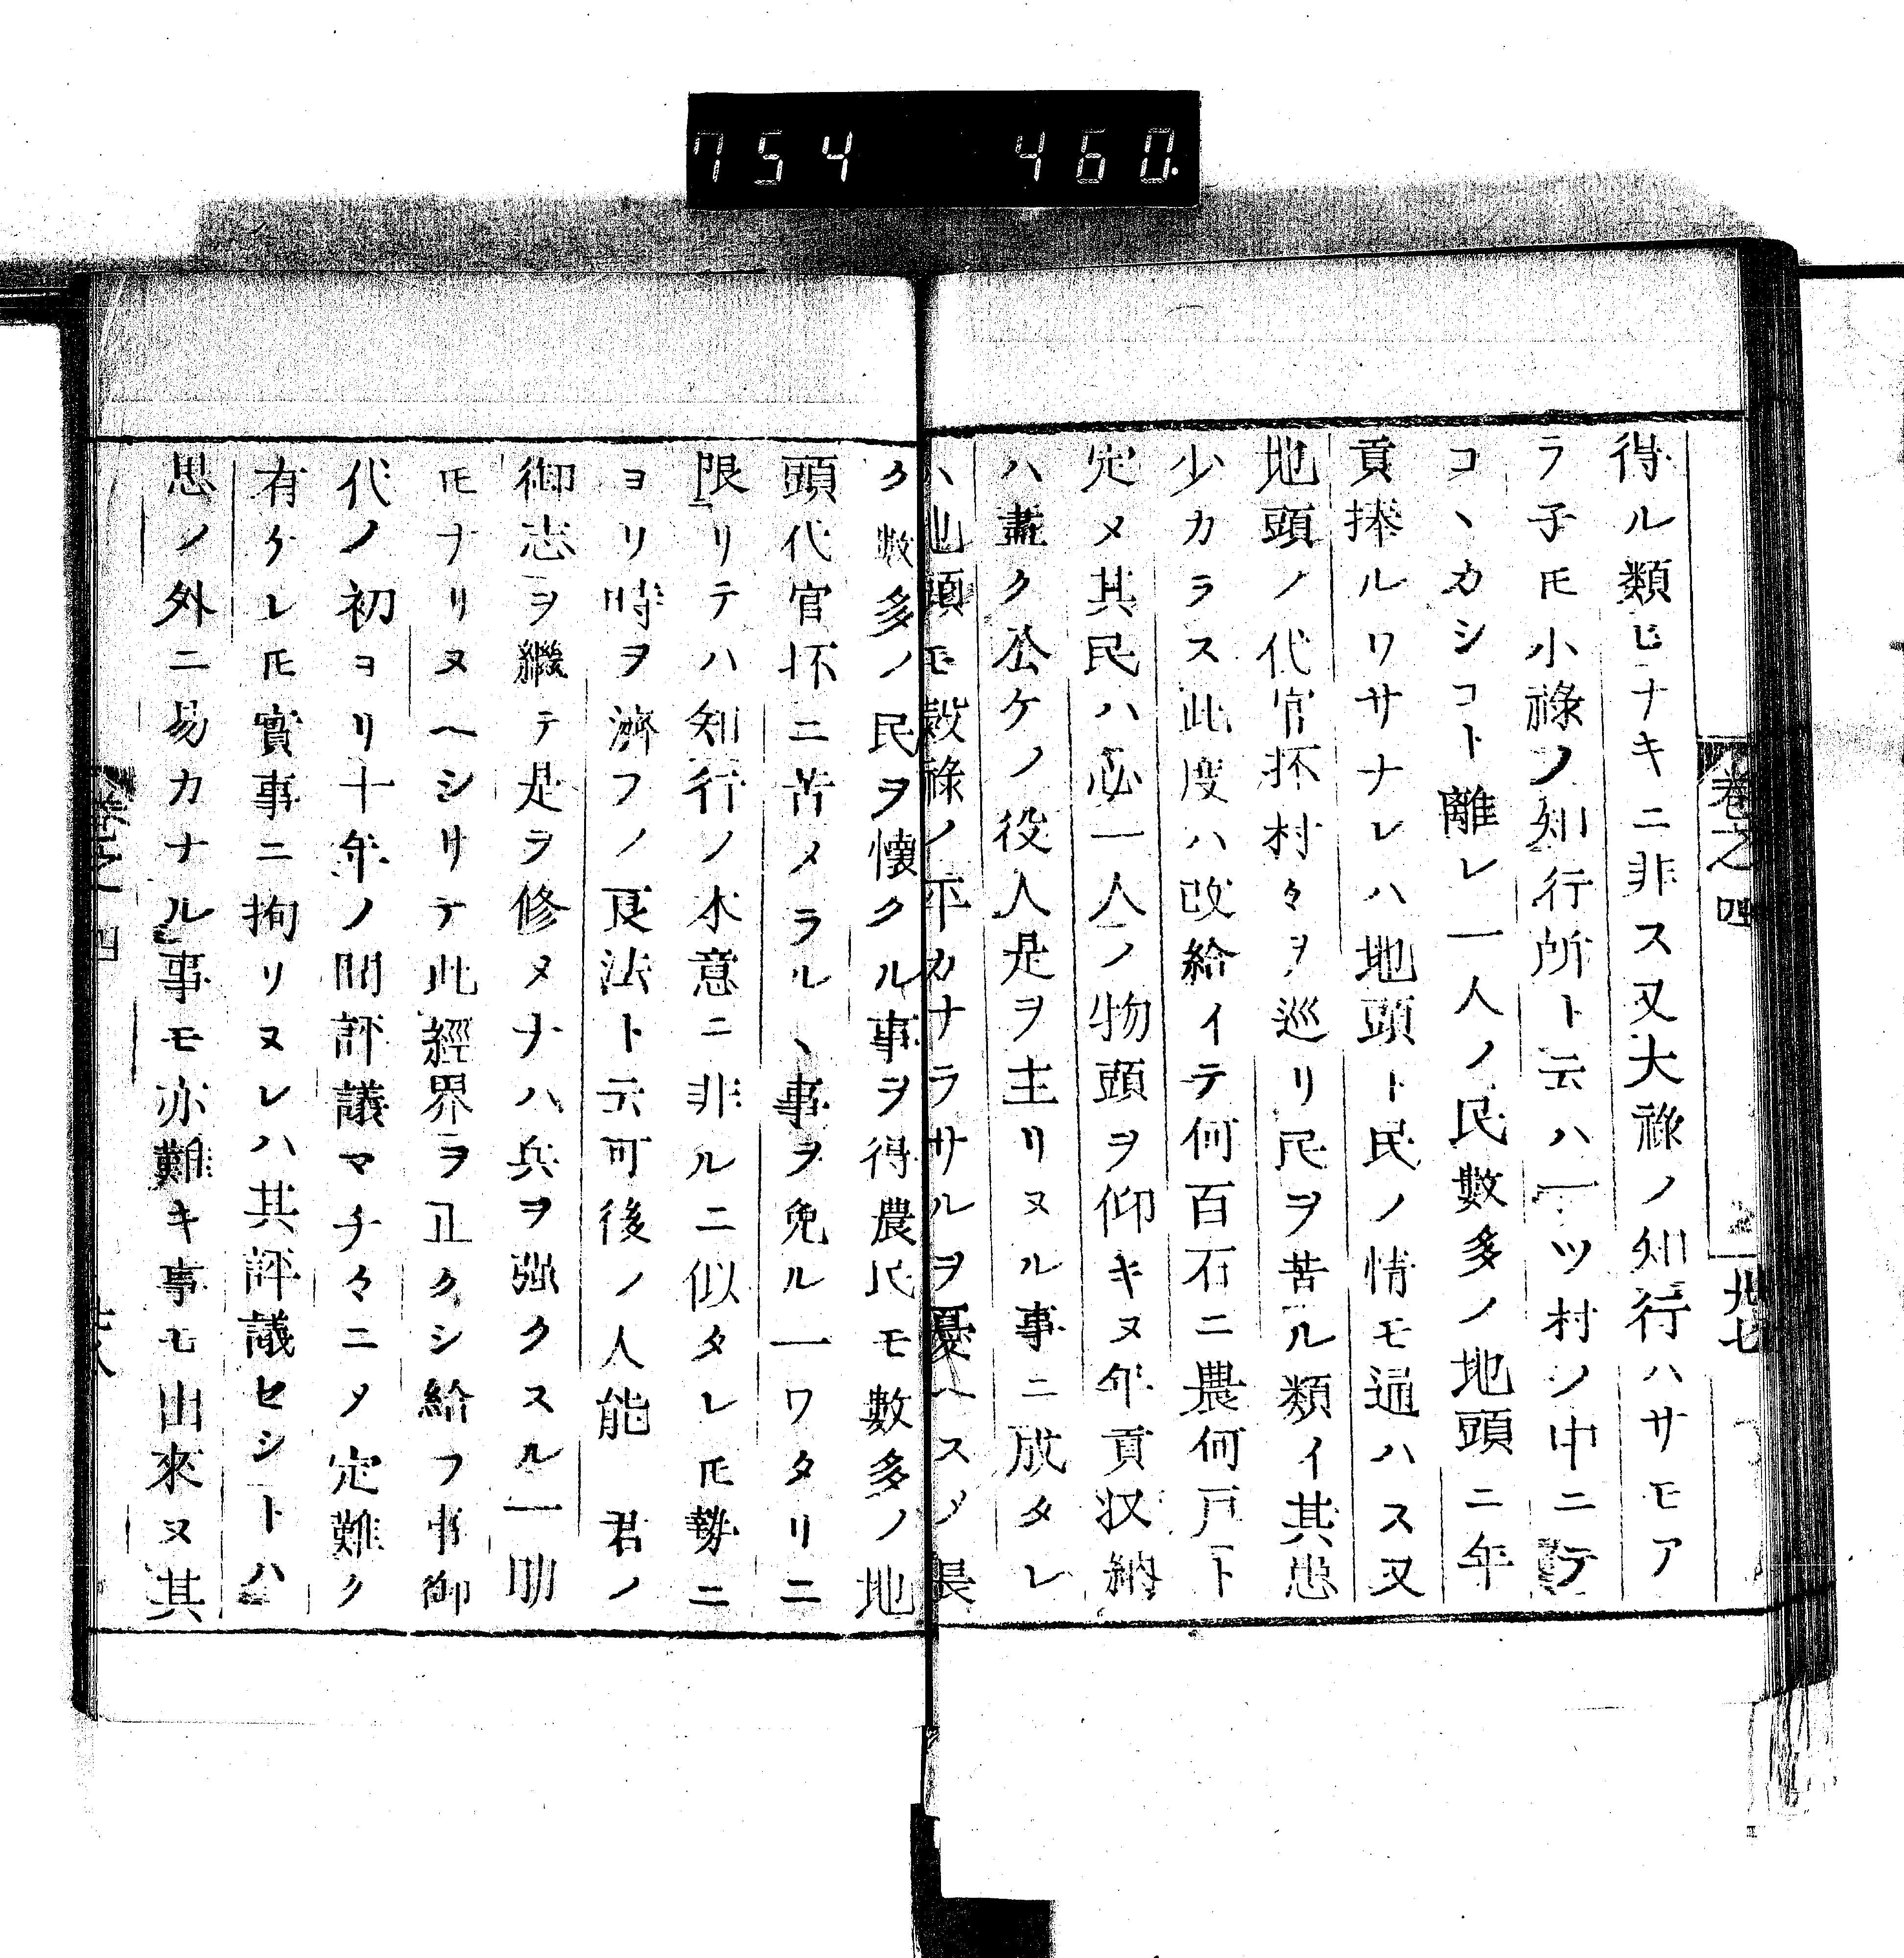 754 460.
卷之四
卅七
得ル類ヒナキニ非ス又大祿ノ知行ハサモア
ラ子𪜈小祿ノ知行所ト云ハ一ツ村ノ中ニテ
コヽカシコト離レ一人ノ民數多ノ地頭ニ年
貢捧ルワサナレハ地頭ト民ノ情モ通ハス又
地頭ノ代官抔村々ヲ巡リ民ヲ苦ル類イ其患
少カラス此度ハ改給イテ何百石ニ農何戸ト
定メ其民ハ必一人ノ物頭ヲ仰キヌ年貢収納
ハ盡ク公ケノ役人是ヲ主リヌル事ニ成タレ
ハ地頭モ穀祿ノ平カナラサルヲ憂ヘス長
ク數多ノ民ヲ懐クル事ヲ得農民モ數多ノ地
頭代官抔ニ苦メラルヽ事ヲ免ル一ワタリニ
限リテハ知行ノ本意ニ非ルニ似タレ𪜈勢ニ
ヨリ時ヲ濟フノ良法ト云可後ノ人能 君ノ
御志ヲ繼テ是ヲ修メナハ兵ヲ強クスル一助
𪜈ナリヌヘシサテ此經界ヲ正クシ給フ事御
代ノ初ヨリ十年ノ間評議マチ々ニメ定難ク
有ケレ𪜈實事ニ拘リヌレハ其評議セシトハ
思ノ外ニ易カナル事モ亦難キ事モ出來ヌ其